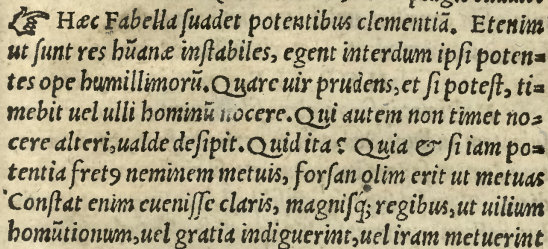 ☞ Hæc Fabella ſuadet potentibus clementiã. Etenim
ut ſunt res hũanæ inſtabiles, egent interdum ipſi poten=
tes ope humillimorũ. Quare uir prudens, et ſi poteſt, ti=
mebit uel ulli hominũ nocere. Qui autem non timet no=
cere alteri, ualde deſipit. Quid ita? Quia & ſi iam po=
tentia fretꝰ neminem metuis, forſan olim erit ut metuas
Conſtat enim eueniſſe claris, magniſq; regibus, ut uilium
homũtionum, uel gratia indiguerint, uel iram metuerint